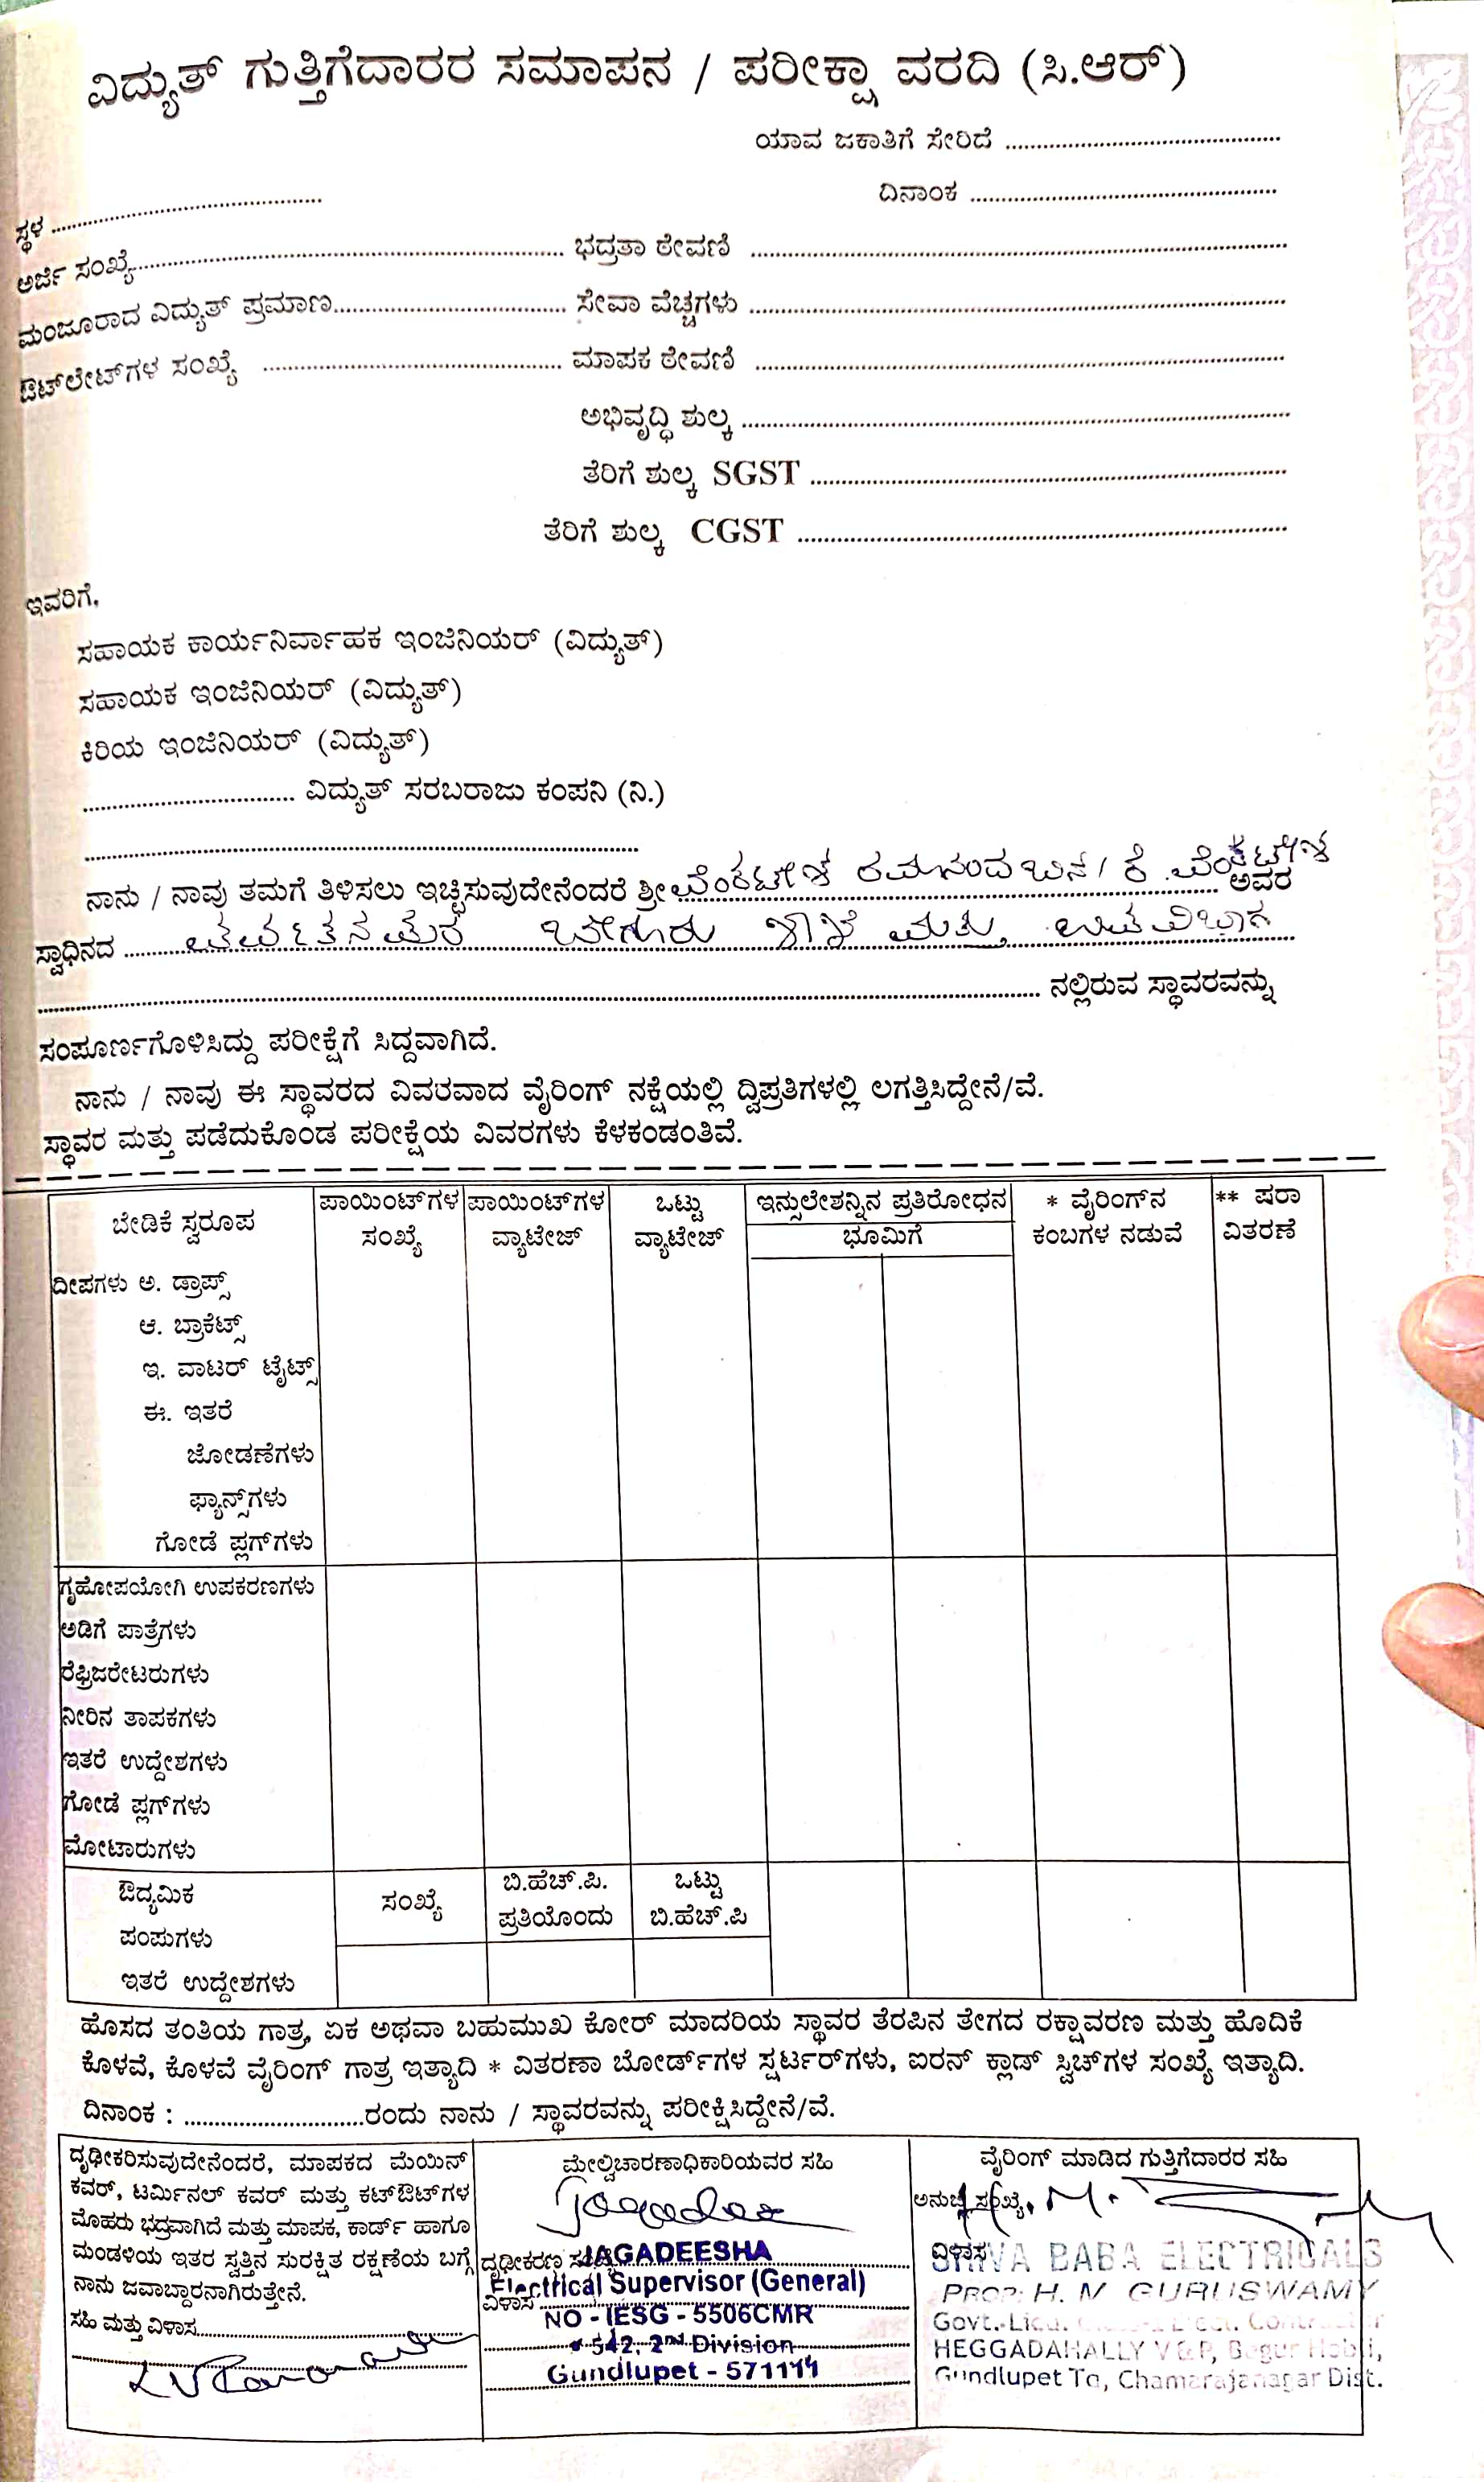 ವಿದ್ಯುತ್ ಗುತ್ತಿಗೆದಾರರ ಸಮಾಪನ / ಪರೀಕ್ಷಾ ವರದಿ (ಸಿ.ಆರ್)
ಯಾವ ಜಕಾತಿಗೆ ಸೇರಿದೆ
ಸ್ಥಳ ದಿನಾಂಕ
ಅರ್ಜಿ ಸಂಖ್ಯೆ ಭದ್ರತಾ ಠೇವಣಿ
ಮಂಜೂರಾದ ವಿದ್ಯುತ್ ಪ್ರಮಾಣ ಸೇವಾ ವೆಚ್ಚಗಳು
ಔಟ್‌ಲೇಟ್‌ಗಳ ಸಂಖ್ಯೆ ಮಾಪಕ ಠೇವಣಿ
ಅಭಿವೃದ್ಧಿ ಶುಲ್ಕ
ತೆರಿಗೆ ಶುಲ್ಕ SGST
ತೆರಿಗೆ ಶುಲ್ಕ CGST
ಇವರಿಗೆ,
ಸಹಾಯಕ ಕಾರ್ಯನಿರ್ವಾಹಕ ಇಂಜಿನಿಯರ್ (ವಿದ್ಯುತ್)
ಸಹಾಯಕ ಇಂಜಿನಿಯರ್ (ವಿದ್ಯುತ್)
ಕಿರಿಯ ಇಂಜಿನಿಯರ್ (ವಿದ್ಯುತ್)
ವಿದ್ಯುತ್ ಸರಬರಾಜು ಕಂಪನಿ (ನಿ.)
ನಾನು / ನಾವು ತಮಗೆ ತಿಳಿಸಲು ಇಚ್ಛಿಸುವುದೇನೆಂದರೆ ಶ್ರೀ ವೆಂಕಟೇಶ ಕೆ ವೆಂಕಟೇಶ ಅವರ
ಸ್ವಾಧಿನದ ಬೇಗೂರು ಶಾಖೆ ಮತ್ತು ಉಪವಿಭಾಗ
ನಲ್ಲಿರುವ ಸ್ಥಾವರವನ್ನು
ಸಂಪೂರ್ಣಗೊಳಿಸಿದ್ದು ಪರೀಕ್ಷೆಗೆ ಸಿದ್ದವಾಗಿದೆ.
ನಾನು / ನಾವು ಈ ಸ್ಥಾವರದ ವಿವರವಾದ ವೈರಿಂಗ್ ನಕ್ಷೆಯಲ್ಲಿ ದ್ವಿಪ್ರತಿಗಳಲ್ಲಿ ಲಗತ್ತಿಸಿದ್ದೇನೆ/ವೆ.
ಸ್ಥಾವರ ಮತ್ತು ಪಡೆದುಕೊಂಡ ಪರೀಕ್ಷೆಯ ವಿವರಗಳು ಕೆಳಕಂಡಂತಿವೆ.
ಬೇಡಿಕೆ ಸ್ವರೂಪ ಪಾಯಿಂಟ್‌ಗಳ ಸಂಖ್ಯೆ ಪಾಯಿಂಟ್‌ಗಳ ವ್ಯಾಟೇಜ್ ಒಟ್ಟು ವ್ಯಾಟೇಜ್ ಇನ್ಸುಲೇಶನ್ನಿನ ಪ್ರತಿರೋಧನ ಭೂಮಿಗೆ * ವೈರಿಂಗ್‌ನ ಕಂಬಗಳ ನಡುವೆ ** ಷರಾ ವಿತರಣೆ
ದೀಪಗಳು ಅ. ಡ್ರಾಪ್ಸ್
ಆ. ಬ್ರಾಕೆಟ್ಸ್
ಇ. ವಾಟರ್ ಟೈಟ್ಸ್
ಈ. ಇತರೆ
ಜೋಡಣೆಗಳು
ಫ್ಯಾನ್ಸ್‌ಗಳು
ಗೋಡೆ ಪ್ಲಗ್‌ಗಳು
ಗೃಹೋಪಯೋಗಿ ಉಪಕರಣಗಳು
ಅಡಿಗೆ ಪಾತ್ರೆಗಳು
ರೆಫ್ರಿಜರೇಟರುಗಳು
ನೀರಿನ ತಾಪಕಗಳು
ಇತರೆ ಉದ್ದೇಶಗಳು
ಗೋಡೆ ಪ್ಲಗ್‌ಗಳು
ಮೋಟಾರುಗಳು
ಔದ್ಯಮಿಕ ಸಂಖ್ಯೆ ಬಿ.ಹೆಚ್.ಪಿ. ಪ್ರತಿಯೊಂದು ಒಟ್ಟು ಬಿ.ಹೆಚ್.ಪಿ
ಪಂಪುಗಳು
ಇತರೆ ಉದ್ದೇಶಗಳು
ಹೊಸದ ತಂತಿಯ ಗಾತ್ರ, ಏಕ ಅಥವಾ ಬಹುಮುಖ ಕೋರ್ ಮಾದರಿಯ ಸ್ಥಾವರ ತೆರಪಿನ ತೇಗದ ರಕ್ಷಾವರಣ ಮತ್ತು ಹೊದಿಕೆ
ಕೊಳವೆ, ಕೊಳವೆ ವೈರಿಂಗ್ ಗಾತ್ರ ಇತ್ಯಾದಿ * ವಿತರಣಾ ಬೋರ್ಡ್‌ಗಳ ಸ್ಷರ್ಟರ್‌ಗಳು, ಐರನ್ ಕ್ಲಾಡ್ ಸ್ವಿಚ್‌ಗಳ ಸಂಖ್ಯೆ ಇತ್ಯಾದಿ.
ದಿನಾಂಕ : ರಂದು ನಾನು / ಸ್ಥಾವರವನ್ನು ಪರೀಕ್ಷಿಸಿದ್ದೇನೆ/ವೆ.
ದೃಢೀಕರಿಸುವುದೇನೆಂದರೆ, ಮಾಪಕದ ಮೆಯಿನ್
ಕವರ್, ಟರ್ಮಿನಲ್ ಕವರ್ ಮತ್ತು ಕಟ್‌ಔಟ್‌ಗಳ
ಮೊಹರು ಭದ್ರವಾಗಿದೆ ಮತ್ತು ಮಾಪಕ, ಕಾರ್ಡ್ ಹಾಗೂ
ಮಂಡಳಿಯ ಇತರ ಸ್ವತ್ತಿನ ಸುರಕ್ಷಿತ ರಕ್ಷಣೆಯ ಬಗ್ಗೆ
ನಾನು ಜವಾಬ್ದಾರನಾಗಿರುತ್ತೇನೆ.
ಸಹಿ ಮತ್ತು ವಿಳಾಸ
ಮೇಲ್ವಿಚಾರಣಾಧಿಕಾರಿಯವರ ಸಹಿ
ದೃಢೀಕರಣ ಸಂಖ್ಯೆ JAGADEESHA
Electrical Supervisor (General)
ವಿಳಾಸ NO - IESG - 5506CMR
542, 2nd Division
Gundlupet - 571111
ವೈರಿಂಗ್ ಮಾಡಿದ ಗುತ್ತಿಗೆದಾರರ ಸಹಿ
ಅನುಜ್ಞೆ ಸಂಖ್ಯೆ
ವಿಳಾಸ SHIVA BABA ELECTRICALS
PROP: H. M GURUSWAMY
HEGGADAHALLY V&P, Begur Hobli,
Gundlupet Tq, Chamarajanagar Dist.